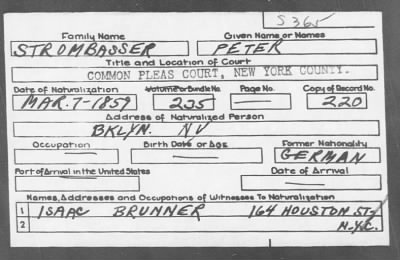 S 365
Family Name Given Name or Names
STROMBASSER PETER
Title and Location of Court
COMMON PLEAS COURT, NEW YORK COUNTY.
Date of Naturalization Volume or Bundle No. Page No. Copy of Record No.
MAR. 7-1859 235 — 220
Address of Naturalized Person
BKLYN. NY
Occupation Birth Date or Age Former Nationality
— — GERMAN
Port of Arrival in the United States Date of Arrival
— —
Names, Addresses and Occupations of Witnesses To Naturalization
1 ISAAC BRUNNER 164 HOUSTON ST-
2 N.Y.C.